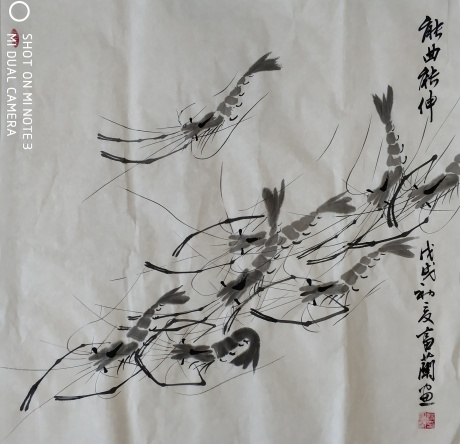 能曲能伸
戊戌初夏富兰画
SHOT ON MI NOTE 3
MI DUAL CAMERA